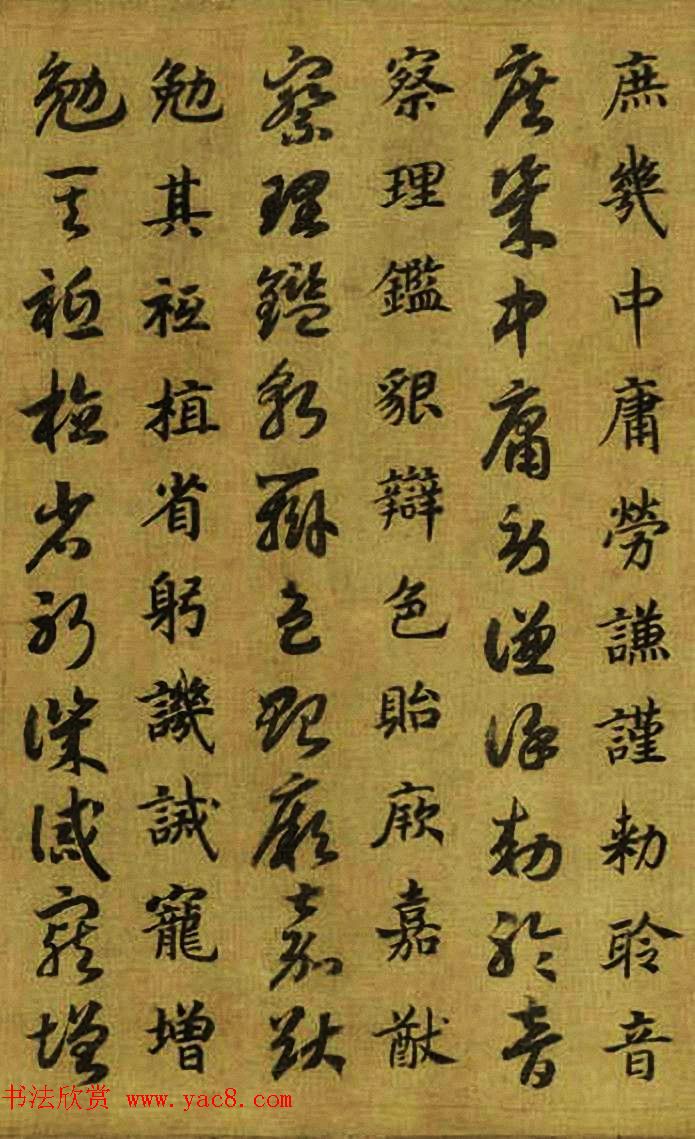 庶幾中庸勞謙謹勅聆音
庶幾中庸勞謙謹勅聆音
察理鑑貌辯色貽厥嘉猷
察理鑑貌辯色貽厥嘉猷
勉其祗植省躬譏誡寵增
勉其祗植省躬譏誡寵增
书法欣赏 www.yac8.com